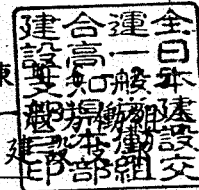 全日本建設交
運一般労働組
合高知県本部
建設支部印
東
建